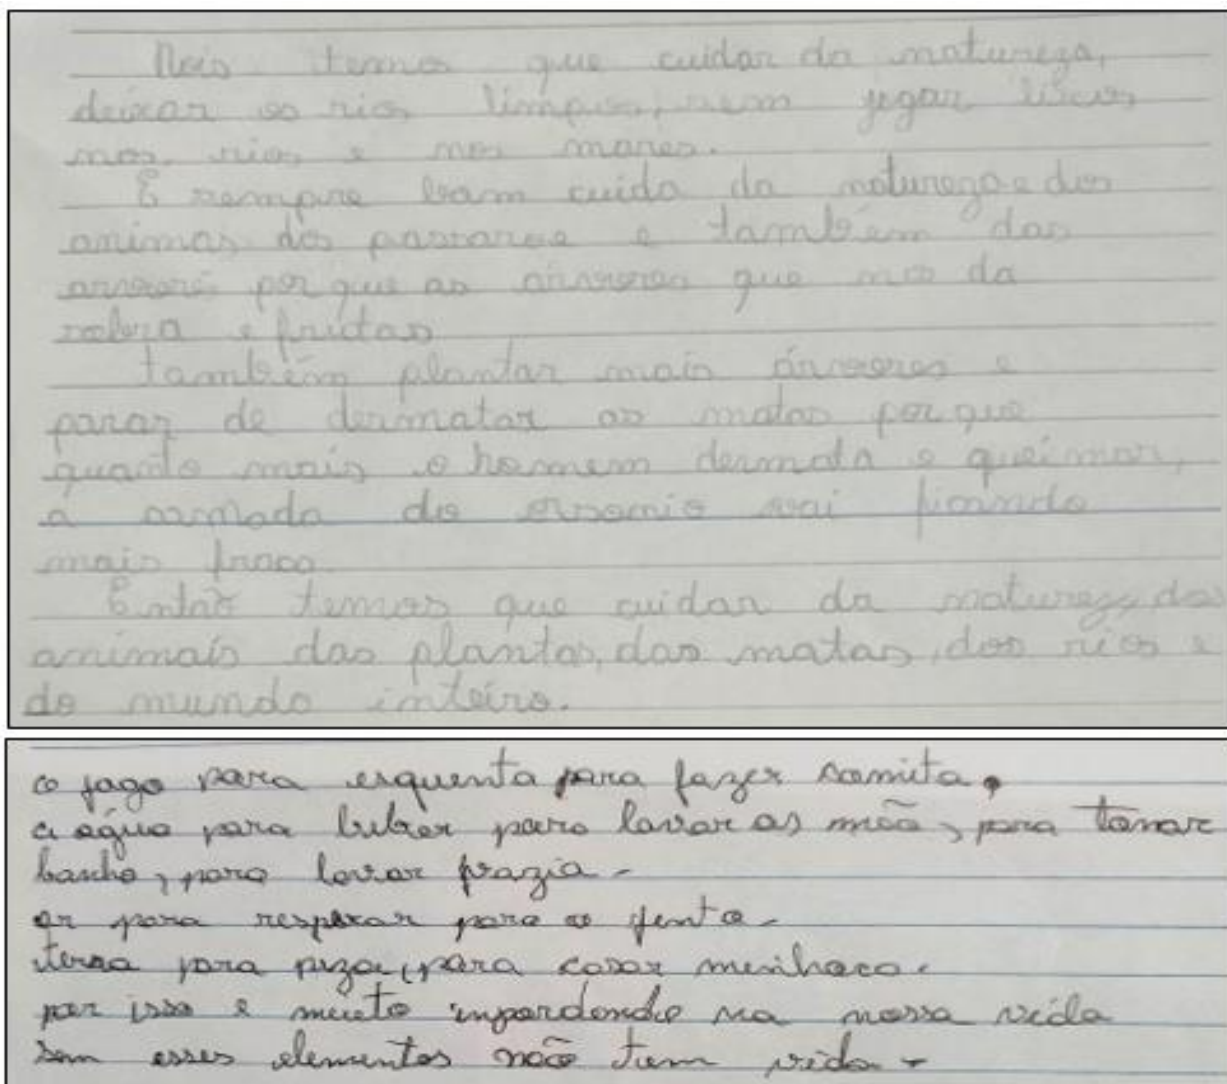 Nois temos que cuidar da natureza,
deixar os rios limpos, nem jogar lixos
nos rios e nos mares.
E sempre bom cuida da natureza e dos
animas, dos passaros e também das
porque as árvores que nos da
e frutas
também plantar mais árvores e
parar de dermatar as matas porque
quanto mais o homem dermata e queimar,
a do vai ficando
mais fraco
Então temos que cuidar da natureza, dos
animais das plantas, das matas, dos rios e
do mundo inteiro.
o fago para esquenta para fazer comita.
a água para beber para lavar as mão, para tomar
banho, para lavar
ar para respirar para a
terra para para cavar minhoca.
por isso e muito na nossa vida
sem esses elementos não tem vida.